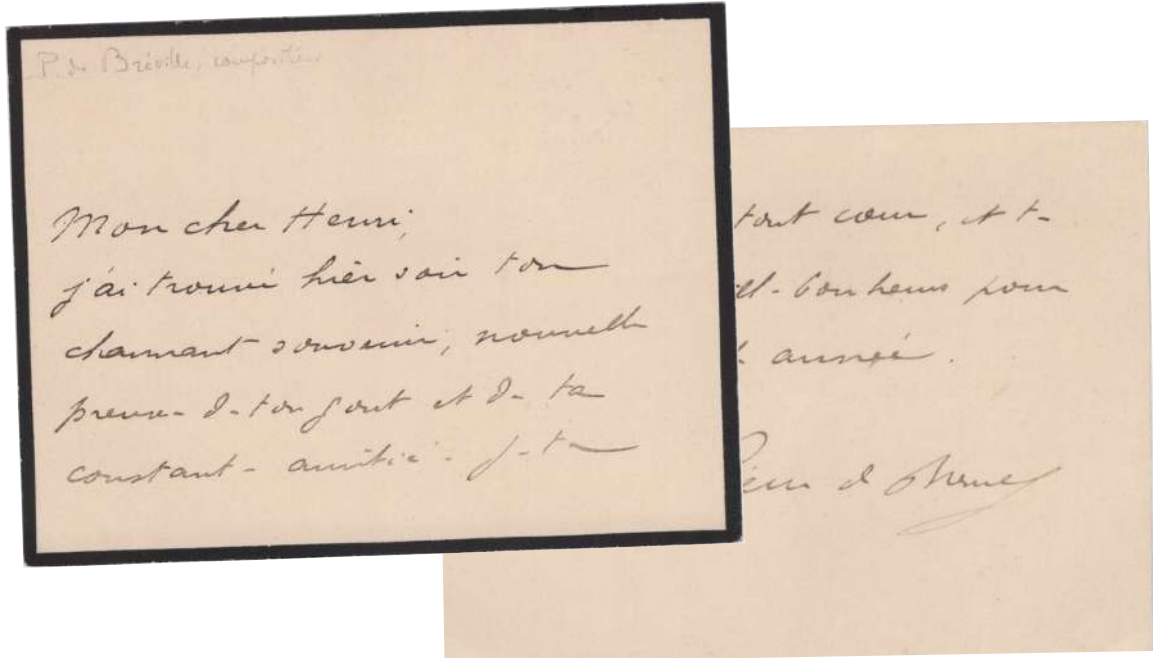 P. de Bréville, compositeur
Mon cher Henri,
j'ai trouvé hier soir ton
charmant souvenir, nouvelle
preuve de ton gout et de ta
constante amitié. Je t'en
tout cœur, et te
bonheurs pour
année.
Pierre de Bréville